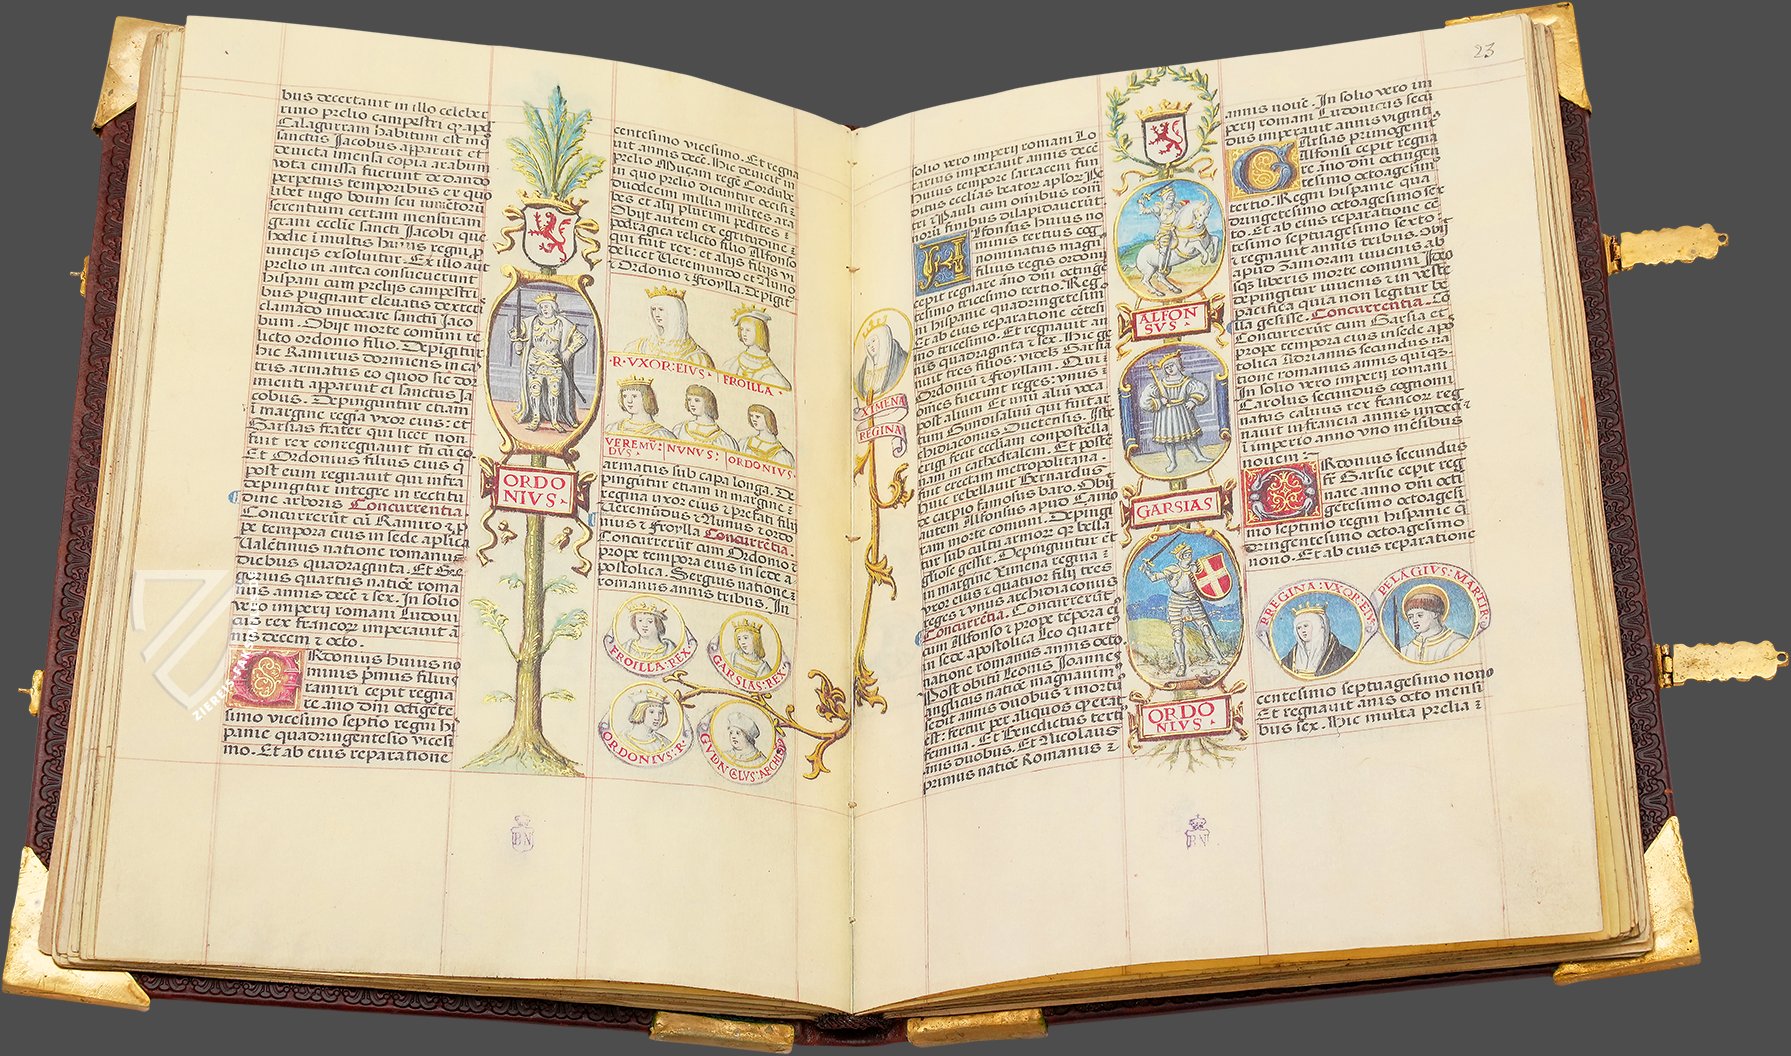 bus decertavit in illo celeber
rimo prelio campestri
Calagurram habitum est
sanctus Jacobus apparuit et
devicta imensa copia arabum
vota emissa fuerunt de dando
perpetuis temporibus ex quo
libet iugo boum seu iumētorū
certam mensuram
grani ecclīe sancti Jacobi que
hodie ī multis huius regni
exsolvitur. Ex illo aūt
prelio in antea consueverunt
hispani cum prelijs campestri
bus pugnant elevatis
clamādo invocare sancti Jaco
bum. Obijt morte comuni re
licto ordonio filio. Depigitur
hic Ramirus dormiens in cas
tris armatus eo quod sic dor
mienti apparuit ei sanctus Ja
cobus. Depinguntur etiam
ī margine regīa uxor eius: et
Garsias frater qui licet non
fuit rex conregnauit tn̄ cū eo
Et Ordonius filius eius q̄
post eum regnauit qui infra
depingitur integre in rectitu
dine arboris Concurrentia.
Concurrerūt cū Ramiro
pe tempora eius in sede aplica
Valētinus natione romanus
diebus quadraginta. Et Gre
gorius quartus natiōe roma
nus annis decē ī sex. In solio
vero imperij romani Ludovi
cus rex francor imperauit ā
nis decem ī octo.
Ordonius huius no
minis p̄imus filius
ramiri cepit regna
re āno dn̄i octigēte
simo vicesimo septio regni hi
spanie quadringentesīo vicesi
mo. Et ab eius reparatione
ORDO
NIVS
centesimo vicesimo. Et regna
uit annis decē. Hic devicit in
prelio Muçam regē Cordube
in quo prelio dicuntur occisi
duodecim millia milites ara
bes et alij plurimi pedites
Obijt autem ex egritudine
podragica relicto filio Alfonso
qui fuit rex: et alijs filijs vi
delicet Veremundo et Nuno
ī Ordonio ī Froylla. Depigit
R·VXOR·EIVS·
FROILLA·
VEREMV̄·
DVS·
NVNVS·
ORDONIVS·
armatus sub capa longa. De
pinguntur etiam in margine
regina uxor eius ī prefati filij
Veremūdus ī Nunus ī ordo
nius ī Froylla Concurrētia.
Concurrerūt cum Ordonio
prope tempora eius in sede a
postolica. Sergius natione
romanus annis tribus. In
FROILLA·REX·
GARSIAS·REX·
ORDONIVS·R·
BN
23
XIMENA
REGINA
solio vero imperij romani Lo
tarius imperauit annis decē
huius tempore sarraceni fūn
ditus ecclīas beator aplor Pe
tri ī Pauli cum omībus
fūibus dilapidauerūt
Alfonsus huius no
minis tertius cog
nominatus magn̄
filius regis ordonij
cepit regnare āno dn̄i octinge
tesimo tricesimo tertio. Reg
ni hispanie quadringetesimi
Et ab eius reparatione cētesi
mo tricesimo. Et regnauit an
nis quadraginta ī sex. Hic ge
nuit tres filios: videlz Garsiā
Ordoniū ī Froyllam. Qui
omēs fuerunt reges: unus
post alium. Et unū aliū voca
tum Gundisaluū qui fuit ar
chidiaconus Ouetensis. Iste
erigi fecit ecclesiam compostella
nam in cathedralem. Et poste
fuit erectam metropolitana.
Huic rebellauit Bernardus
de carpio famosus baro. Obijt
autem Alfonsus apud Camo
ram morte comuni. Depingi
tur sub cultu armor q̄ bella
gliose gessit. Depinguntur et
in margine Ximena regina
uxor eius ī quatuor filij tres
reges ī unus archidiaconus
Concurrētia. Concurrerūt
cum Alfonso ī prope tēpora ei
in sede apostolica Leo quart
natione romanus annis octo
Post obitū Leonis Joannes
anglicus natiōe magnanimi
sedit annis duobus ī mortu
est: fertur per aliquos q̄ erat
femina. Et Benedictus terti
annis duobus. Et Nicolaus
primus natiōe Romanus
ALFON
SVS·
GARSIAS
ORDO
NIVS·
annis novē. In solio vero im
perij romani Ludovicus secū
dus imperauit annis viginti
Garsias primogenit
Alfonsi cepit regna
re āno dn̄i octingen
tesimo octoagesimo
tertio. Regni hispanie qua
dringetesimo octoagesimo sex
to. Et ab eius reparatione cē
tesimo septuagesimo sexto:
ī regnauit annis tribus. Obijt
apud Zamoram iuvenis ab
sq̄ liberis morte comuni Ideo
depingitur iuvenis ī in veste
pacifica quia non legitur be
lla gesisse. Concurrentia. Cō
concurrerūt cum Garsia et
prope tempora eius in sede apo
stolica Adrianus secundus na
tione romanus annis quiq̄
In solio vero imperij romani
Carolus secundus cognomi
natus calvus rex francor reg
nauit in francia annis undeci
ī imperio anno uno mēsibus
novem:
Ordonius secundus
fr̄ Garsie cepit reg
nare anno dn̄i octi
gentesimo octoagesi
mo septimo regni hispanie q̄
dringentesimo octoagesimo
nono. Et ab eius reparatione
REGINA·VXOR·EIVS·
PELAGIVS·MARTIR·
centesimo septuagesimo nono
Et regnauit anis octo mensi
bus sex. Hic multa prelia
BN